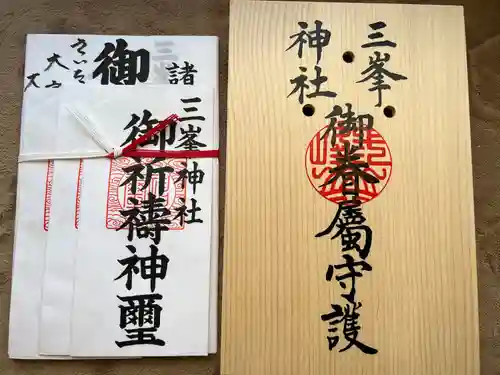 三峯
神社
御眷屬守護
諸
御
三峯神社
御祈禱神璽